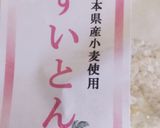 本県産小麦使用
すいとん